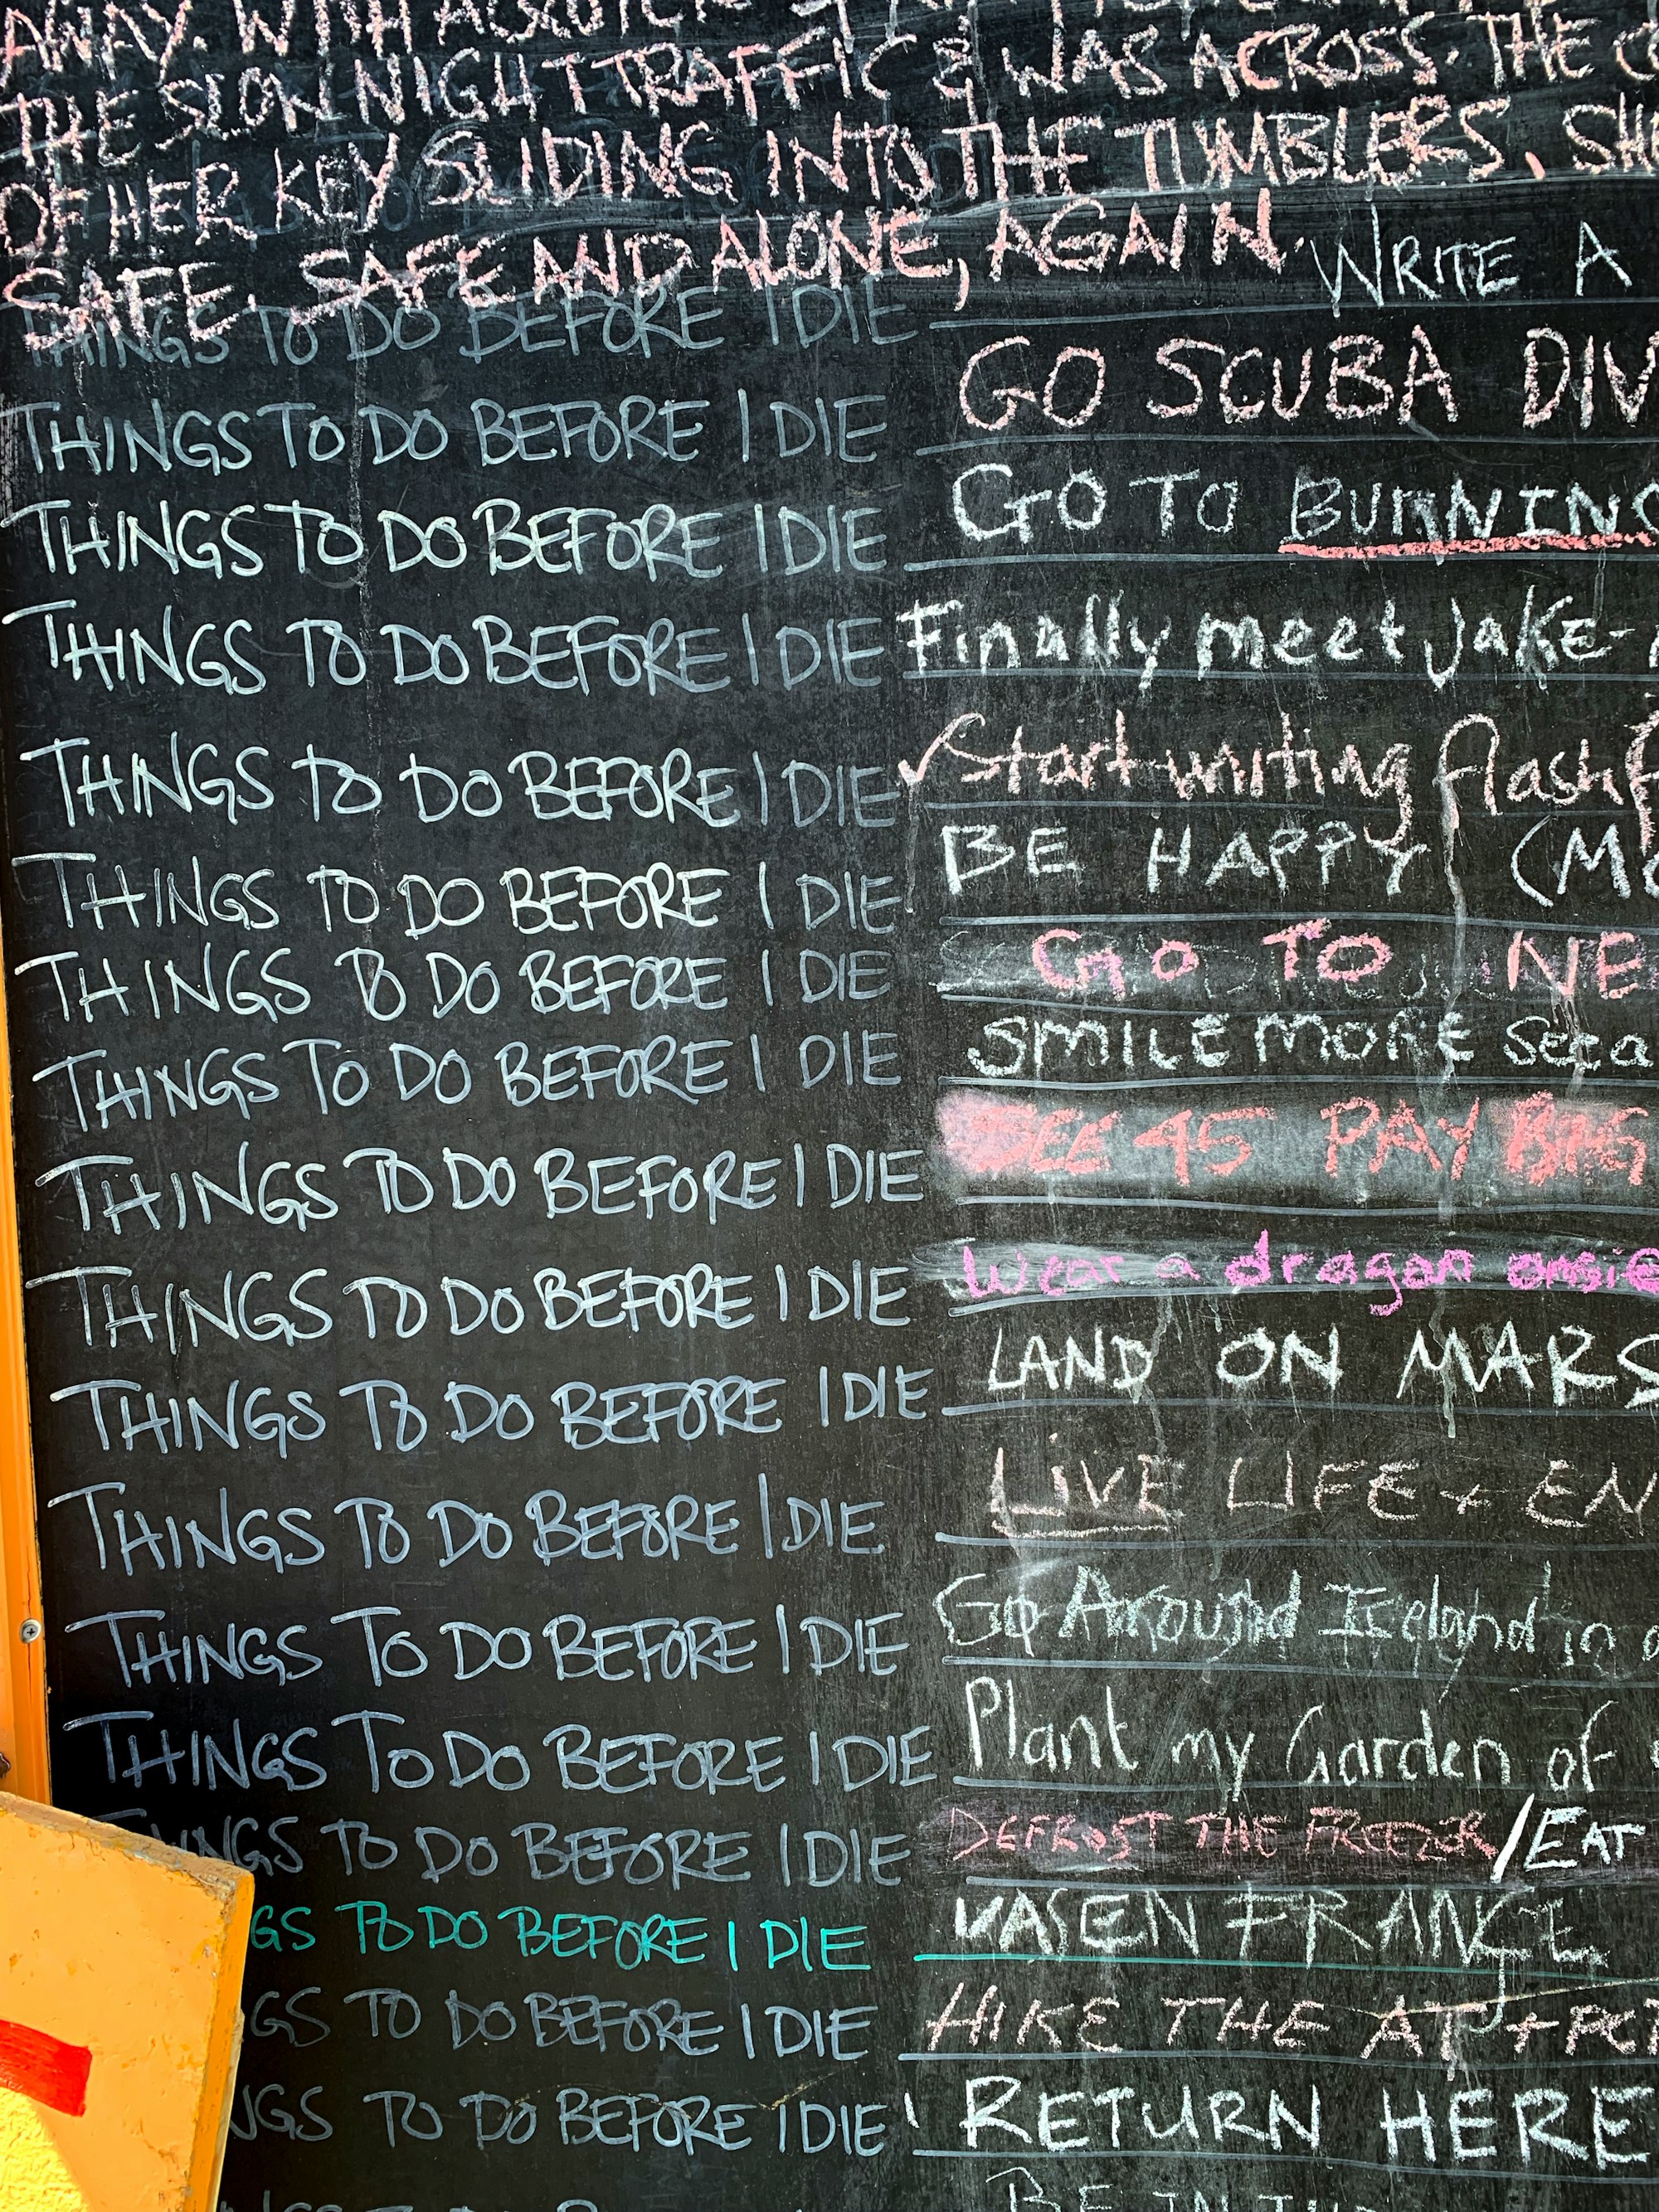 AWAY. WITH A QUICK
THE SLOW NIGHT TRAFFIC & WAS ACROSS. THE
OF HER KEY SLIDING INTO THE TUMBLERS. SH
SAFE. SAFE AND ALONE, AGAIN.
THINGS TO DO BEFORE I DIE WRITE A
THINGS TO DO BEFORE I DIE GO SCUBA DIV
THINGS TO DO BEFORE I DIE GO TO BURNING
THINGS TO DO BEFORE I DIE Finally meet Jake-
THINGS TO DO BEFORE I DIE ✓ Start writing flash f
THINGS TO DO BEFORE I DIE BE HAPPY (MO
THINGS TO DO BEFORE I DIE GO TO NE
THINGS TO DO BEFORE I DIE SMILE MORE
THINGS TO DO BEFORE I DIE SEE 45 PAY BIG
THINGS TO DO BEFORE I DIE Wear a dragon onsie
THINGS TO DO BEFORE I DIE LAND ON MARS
THINGS TO DO BEFORE I DIE LIVE LIFE + EN
THINGS TO DO BEFORE I DIE Go Around Iceland in
THINGS TO DO BEFORE I DIE Plant my Garden of
THINGS TO DO BEFORE I DIE DEFROST THE FREEZER / EAT
GS TO DO BEFORE I DIE VASEN FRANCE
GS TO DO BEFORE I DIE HIKE THE AT + PCT
NGS TO DO BEFORE I DIE RETURN HERE
BE IN